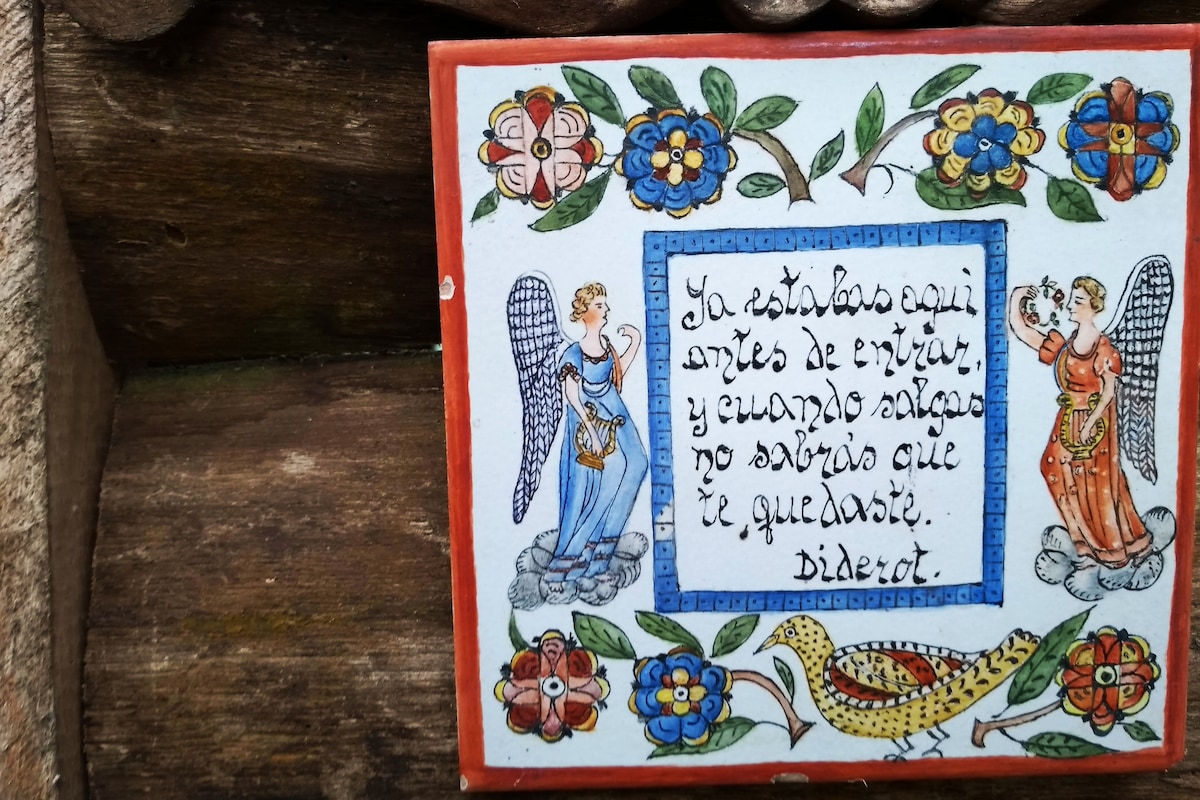 Ya estabas aqui
antes de entrar,
y cuando salgas
no sabrás que
te quedaste.
Diderot.